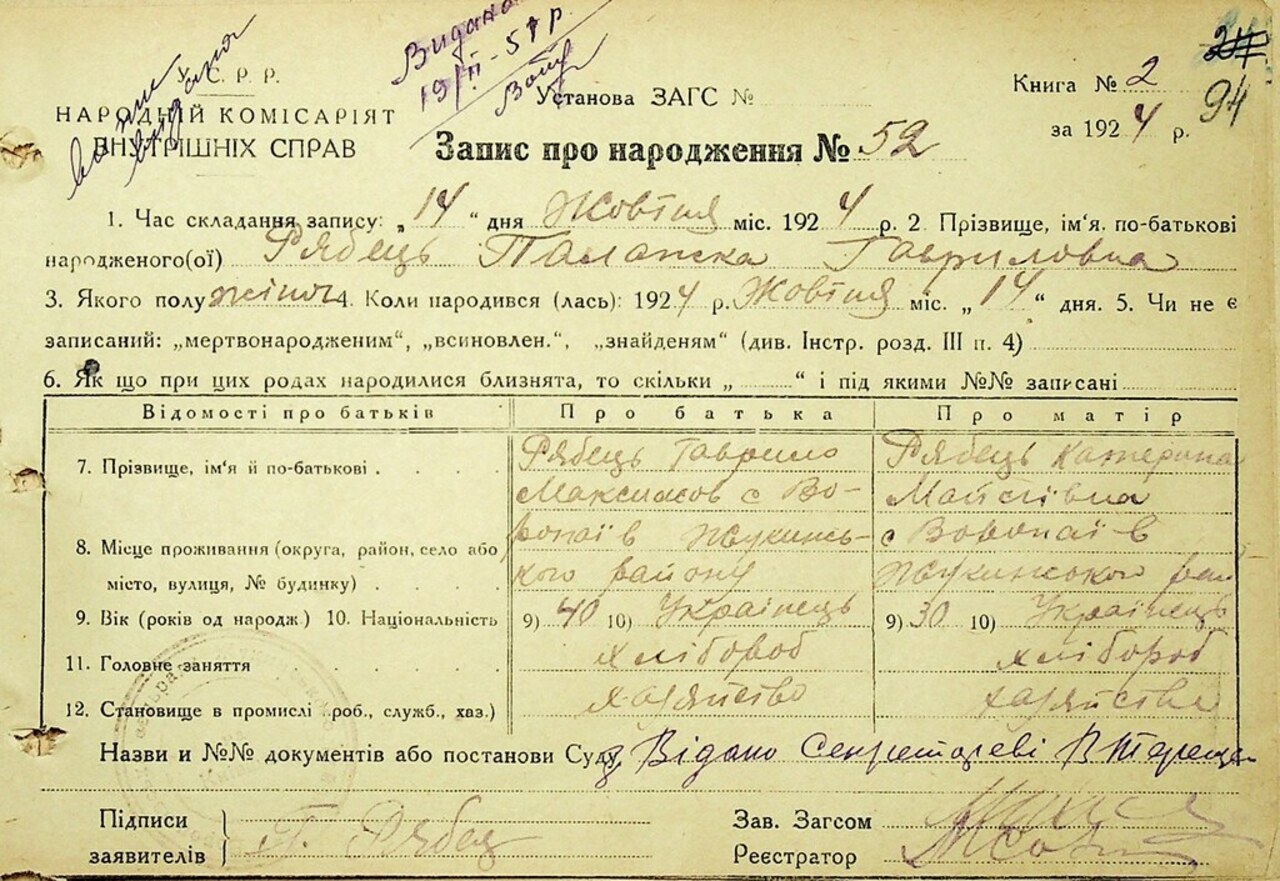 Видана
19/II-51р
У. С. Р. Р.
НАРОДНІЙ КОМІСАРІЯТ
ВНУТРІШНІХ СПРАВ
Установа ЗАГС №
Книга № 2
94
за 1924 р.
Запис про народження № 52
1. Час складання запису: „14“ дня Жовтня міс. 1924 р. 2. Прізвище, ім'я, по-батькові
народженого(ої) Рябець Палажка Гавриловна
3. Якого полу жіноч 4. Коли народився (лась): 1924 р. Жовтня міс. „14“ дня. 5. Чи не є
записаний: „мертвонародженим“, „всиновлен.“, „знайденям“ (див. Інстр. розд. III п. 4)
6. Як що при цих родах народилися близнята, то скільки „ “ і під якими №№ записані
Відомості про батьків Про батька Про матір
7. Прізвище, ім'я й по-батькові Рябець Гаврило Рябець Катерина
Максимов с Во- Мойсіївна
8. Місце проживання (округа, район, село або ропаїв Жукинсь- с Воропаїв
місто, вулиця, № будинку) кого району Жукинського
9. Вік (років од народж.) 10. Національність 9) 40 10) Українець 9) 30 10) Українець
11. Головне заняття хлібороб хлібороб
12. Становище в промислі (роб., служб., хаз.) хазяйство хазяйство
Назви и №№ документів або постанови Суду Відано Секретареві
Підписи
заявителів Г. Рябец
Зав. Загсом
Реєстратор